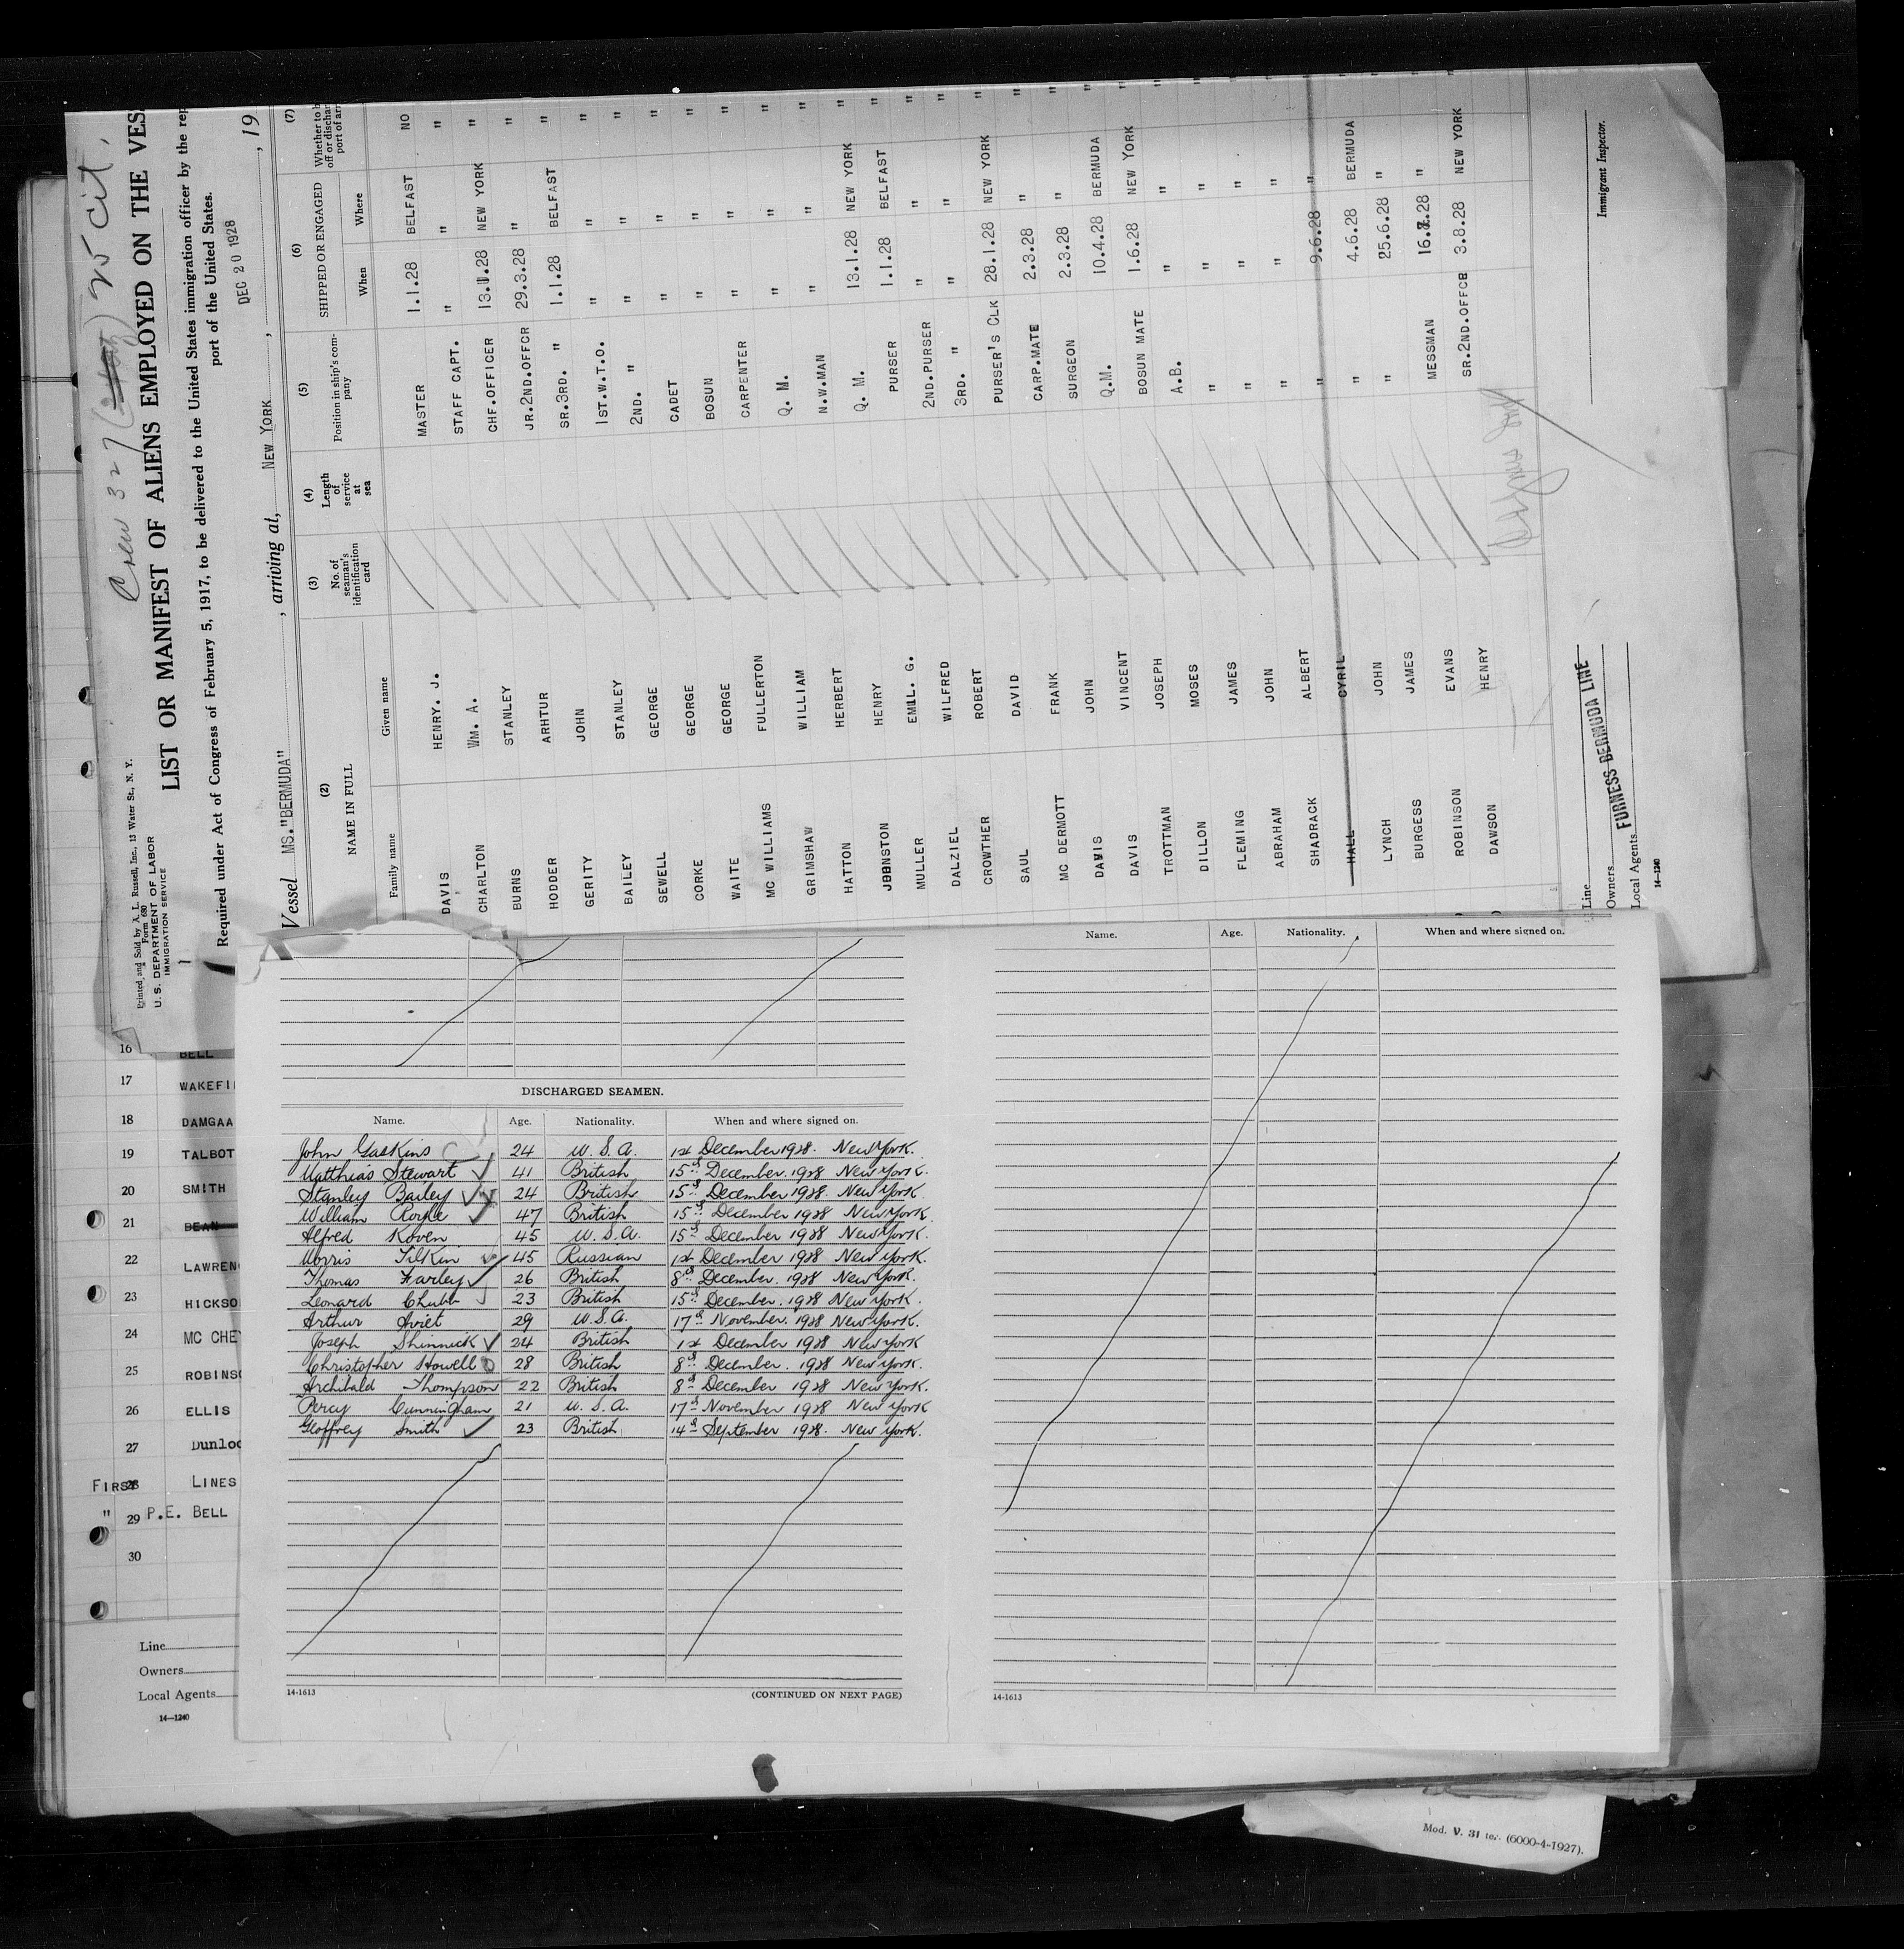 Crew 327 25 Cit.
Printed and Sold by A. L. Russell, Inc., 13 Water St., N. Y.
Form 680
U. S. DEPARTMENT OF LABOR
IMMIGRATION SERVICE
LIST OR MANIFEST OF ALIENS EMPLOYED ON THE VES
Required under Act of Congress of February 5, 1917, to be delivered to the United States immigration officer by the rep
port of the United States.
DEC 20 1928
Vessel MS."BERMUDA", arriving at, NEW YORK, , 19
(2) (3) (4) (5) (6) (7)
NAME IN FULL No. of seaman's identification card Length of service at sea Position in ship's company SHIPPED OR ENGAGED Whether to b off or dischar port of arr
Family name Given name When Where
DAVIS HENRY. J. MASTER 1.1.28 BELFAST NO
CHARLTON WM. A. STAFF CAPT. " " "
BURNS STANLEY CHF.OFFICER 13.1.28 NEW YORK "
HODDER ARHTUR JR.2ND.OFFCR 29.3.28 " "
GERITY JOHN SR.3RD. " 1.1.28 BELFAST "
BAILEY STANLEY 1ST.W.T.O. " " "
SEWELL GEORGE 2ND. " " " "
CORKE GEORGE CADET " " "
WAITE GEORGE BOSUN " " "
MC WILLIAMS FULLERTON CARPENTER " " "
GRIMSHAW WILLIAM Q. M. " " "
HATTON HERBERT N.W.MAN " " "
JOHNSTON HENRY Q. M. 13.1.28 NEW YORK "
MULLER EMIL. G. PURSER 1.1.28 BELFAST "
DALZIEL WILFRED 2ND.PURSER " " "
CROWTHER ROBERT 3RD. " " " "
SAUL DAVID PURSER'S CLK 28.1.28 NEW YORK "
MC DERMOTT FRANK CARP.MATE 2.3.28 " "
DAVIS JOHN SURGEON 2.3.28 " "
DAVIS VINCENT Q.M. 10.4.28 BERMUDA "
TROTTMAN JOSEPH BOSUN MATE 1.6.28 NEW YORK "
DILLON MOSES A.B. " " "
FLEMING JAMES " " " "
ABRAHAM JOHN " " " "
SHADRACK ALBERT " " " "
HALL CYRIL " 9.6.28 " "
LYNCH JOHN " 4.6.28 BERMUDA "
BURGESS JAMES " 25.6.28 " "
ROBINSON EVANS MESSMAN 16.7.28 " "
DAWSON HENRY SR.2ND.OFFCR 3.8.28 NEW YORK "
Line
Owners FURNESS BERMUDA LINE
Local Agents
14-1240
Immigrant Inspector.
16 BELL
17 WAKEFI
18 DAMGAA
19 TALBOT
20 SMITH
21 BEAN
22 LAWREN
23 HICKSO
24 MC CHE
25 ROBINSO
26 ELLIS
27 DUNLO
FIRST 28 LINES
" 29 P.E. BELL
30
Line
Owners
Local Agents
14-1240
DISCHARGED SEAMEN.
Name. Age. Nationality. When and where signed on.
John Gaskins 24 U.S.A. 1st December 1928. New York.
Matthias Stewart 41 British 15th December. 1928 New York.
Stanley Bailey 24 British 15th December 1928. New York.
William 47 British 15th December 1928 New York
Alfred Koven 45 U.S.A. 15th December 1928 New York.
Morris Tilkin 45 Russian 1st December 1928 New York.
Thomas Farley 26 British 8th December. 1928 New York.
Leonard Chubb 23 British 15th December. 1928 New York.
Arthur Aviet 29 U.S.A. 17th November. 1928 New York.
Joseph Shinnick 24 British 1st December 1928 New York
Christopher Howell 28 British 8th December. 1928 New York.
Archibald Thompson 22 British 8th December 1928 New York.
Percy Cunningham 21 U.S.A. 17th November 1928 New York
Geoffrey Smith 23 British 14th September 1928. New York.
14-1613 (CONTINUED ON NEXT PAGE)
Name. Age. Nationality. When and where signed on.
14-1613
Mod. V. 31 ter. (6000-4-1927).